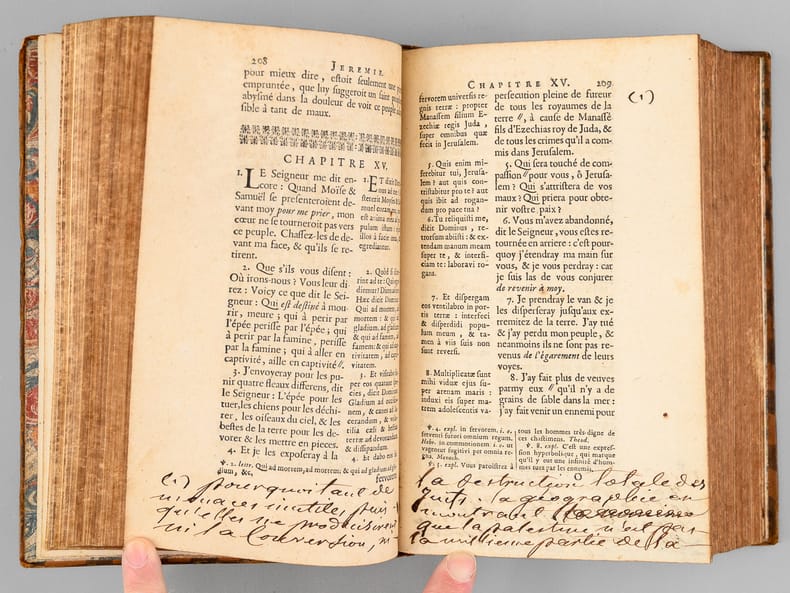 208
JEREMIE.
pour mieux dire, estoit seulement une
empruntée, que luy suggeroit un saint
abysmé dans la douleur de voir ce peuple
sible à tant de maux.
CHAPITRE XV.
1. LE Seigneur me dit en-
core : Quand Moïse &
Samuël se presenteroient de-
vant moy pour me prier, mon
cœur ne se tourneroit pas vers
ce peuple. Chassez-les de de-
vant ma face, & qu'ils se re-
tirent.
2. Que s'ils vous disent :
Où irons-nous ? Vous leur di-
rez : Voicy ce que dit le Sei-
gneur : Qui est destiné à mou-
rir, meure ; qui à perir par
l'épée perisse par l'épée ; qui
à perir par la famine, perisse
par la famine ; qui à aller en
captivité, aille en captivité.
3. J'envoyeray pour les pu-
nir quatre fleaux differens, dit
le Seigneur : L'épée pour les
tuer, les chiens pour les déchi-
rer, les oiseaux du ciel, & les
bestes de la terre pour les de-
vorer & les mettre en pieces.
4. Et je les exposeray à la
1. ET dixit
2. Quòd si
rint ad te : Quò
diemur? Dices
Hæc dicit
Qui ad mortem, ad
& qui ad
gladium, ad
& qui ad famem,
famem : & qui ad
tivitatem, ad
vitatem.
3. Et visitabo
per eos quatuor
cies, dicit
Gladium ad
nem, & canes ad
cerandum, & vola-
tilia cæli & bestias
terræ ad devorandum
& dissipandum.
4. Et dabo eos in
℣. 2. lettr. Qui ad mortem, ad mortem ; & qui ad gladium, ad gla-
dium, &c.
fervorem
(1) pourquoi tant de
menaces inutiles, puis
qu'elles ne produisirent
ni la Conversion, ni
CHAPITRE XV.
209
(1)
fervorem universis re-
gnis terræ : propter
Manassem filium E-
zechiæ regis Juda,
super omnibus quæ
fecit in Jerusalem.
5. Quis enim mi-
serebitur tui, Jerusa-
lem ? aut quis con-
tristabitur pro te ? aut
quis ibit ad rogan-
dum pro pace tua ?
6. Tu reliquisti me,
dicit Dominus, re-
trorsum abiisti : & ex-
tendam manum meam
super te, & interfi-
ciam te : laboravi ro-
gans.
7. Et dispergam
eos ventilabro in por-
tis terræ : interfeci
& disperdidi popu-
lum meum, & ta-
men à viis suis non
sunt reversi.
8. Multiplicatæ sunt
mihi viduæ ejus su-
per arenam maris :
induxi eis super ma-
trem adolescentis va-
persecution pleine de fureur
de tous les royaumes de la
terre, à cause de Manassé
fils d'Ezechias roy de Juda, &
de tous les crimes qu'il a com-
mis dans Jerusalem.
5. Qui sera touché de com-
passion pour vous, ô Jerusa-
lem ? Qui s'attristera de vos
maux ? Qui priera pour obte-
nir vostre paix ?
6. Vous m'avez abandonné,
dit le Seigneur, vous estes re-
tournée en arriere : c'est pour-
quoy j'étendray ma main sur
vous, & je vous perdray : car
je suis las de vous conjurer
de revenir à moy.
7. Je prendray le van & je
les disperseray jusqu'aux ex-
tremitez de la terre. J'ay tué
& j'ay perdu mon peuple, &
neanmoins ils ne sont pas re-
venus de l'égarement de leurs
voyes.
8. J'ay fait plus de veuves
parmy eux qu'il n'y a de
grains de sable dans la mer :
j'ay fait venir un ennemi pour
℣. 4. expl. in servorem. i. e.
serventi furori omnium regum.
Hebr. in commotionem i. e. ut
vagentur fugitivi per omnia re-
gna. Menoch.
℣. 5. expl. Vous paroistrez à
tous les hommes très-digne de
ces chastimens. Theod.
℣. 8. expl. C'est une expres-
sion hyperbolique, qui marque
qu'il y eut un infinité d'hom-
mes tuez par les ennemis.
O
la destruction totale des
Juifs. la geographie en
montrant
que la palestine n'est pas
la millieme partie de la